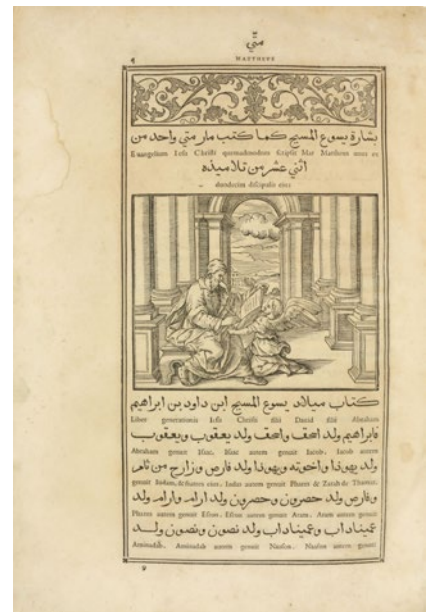 متي
MATTHEVS
بشارة يسوع المسيح كما كتب مار متي واحد من
Euangelium Iesu Christi quemadmodum scripsit Mar Mattheus unus ex
اثني عشر من تلاميذه
duodecim discipulis eius
كتاب ميلاد يسوع المسيح ابن داود بن ابراهيم
Liber generationis Iesu Christi filii Dauid filii Abraham
فابراهيم ولد اسحق واسحق ولد يعقوب ويعقوب
Abraham genuit Isaac. Isaac autem genuit Iacob. Iacob autem
ولد يهوذا واخوته ويهوذا ولد فارص وزارح من ثامر
genuit Iudam, & fratres eius. Iudas autem genuit Phares & Zarah de Thamar.
وفارص ولد حصرون وحصرون ولد ارام وارام ولد
Phares autem genuit Esron. Esron autem genuit Aram. Aram autem genuit
عميناداب وعميناداب ولد نصون ونصون ولد
Aminadab. Aminadab autem genuit Naason. Naason autem genuit